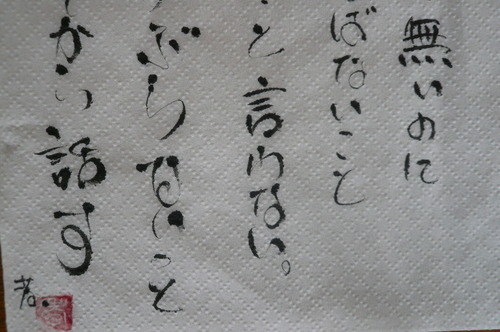 無いのに
ばないこと
と言わない。
ぶらないこと
かい話す